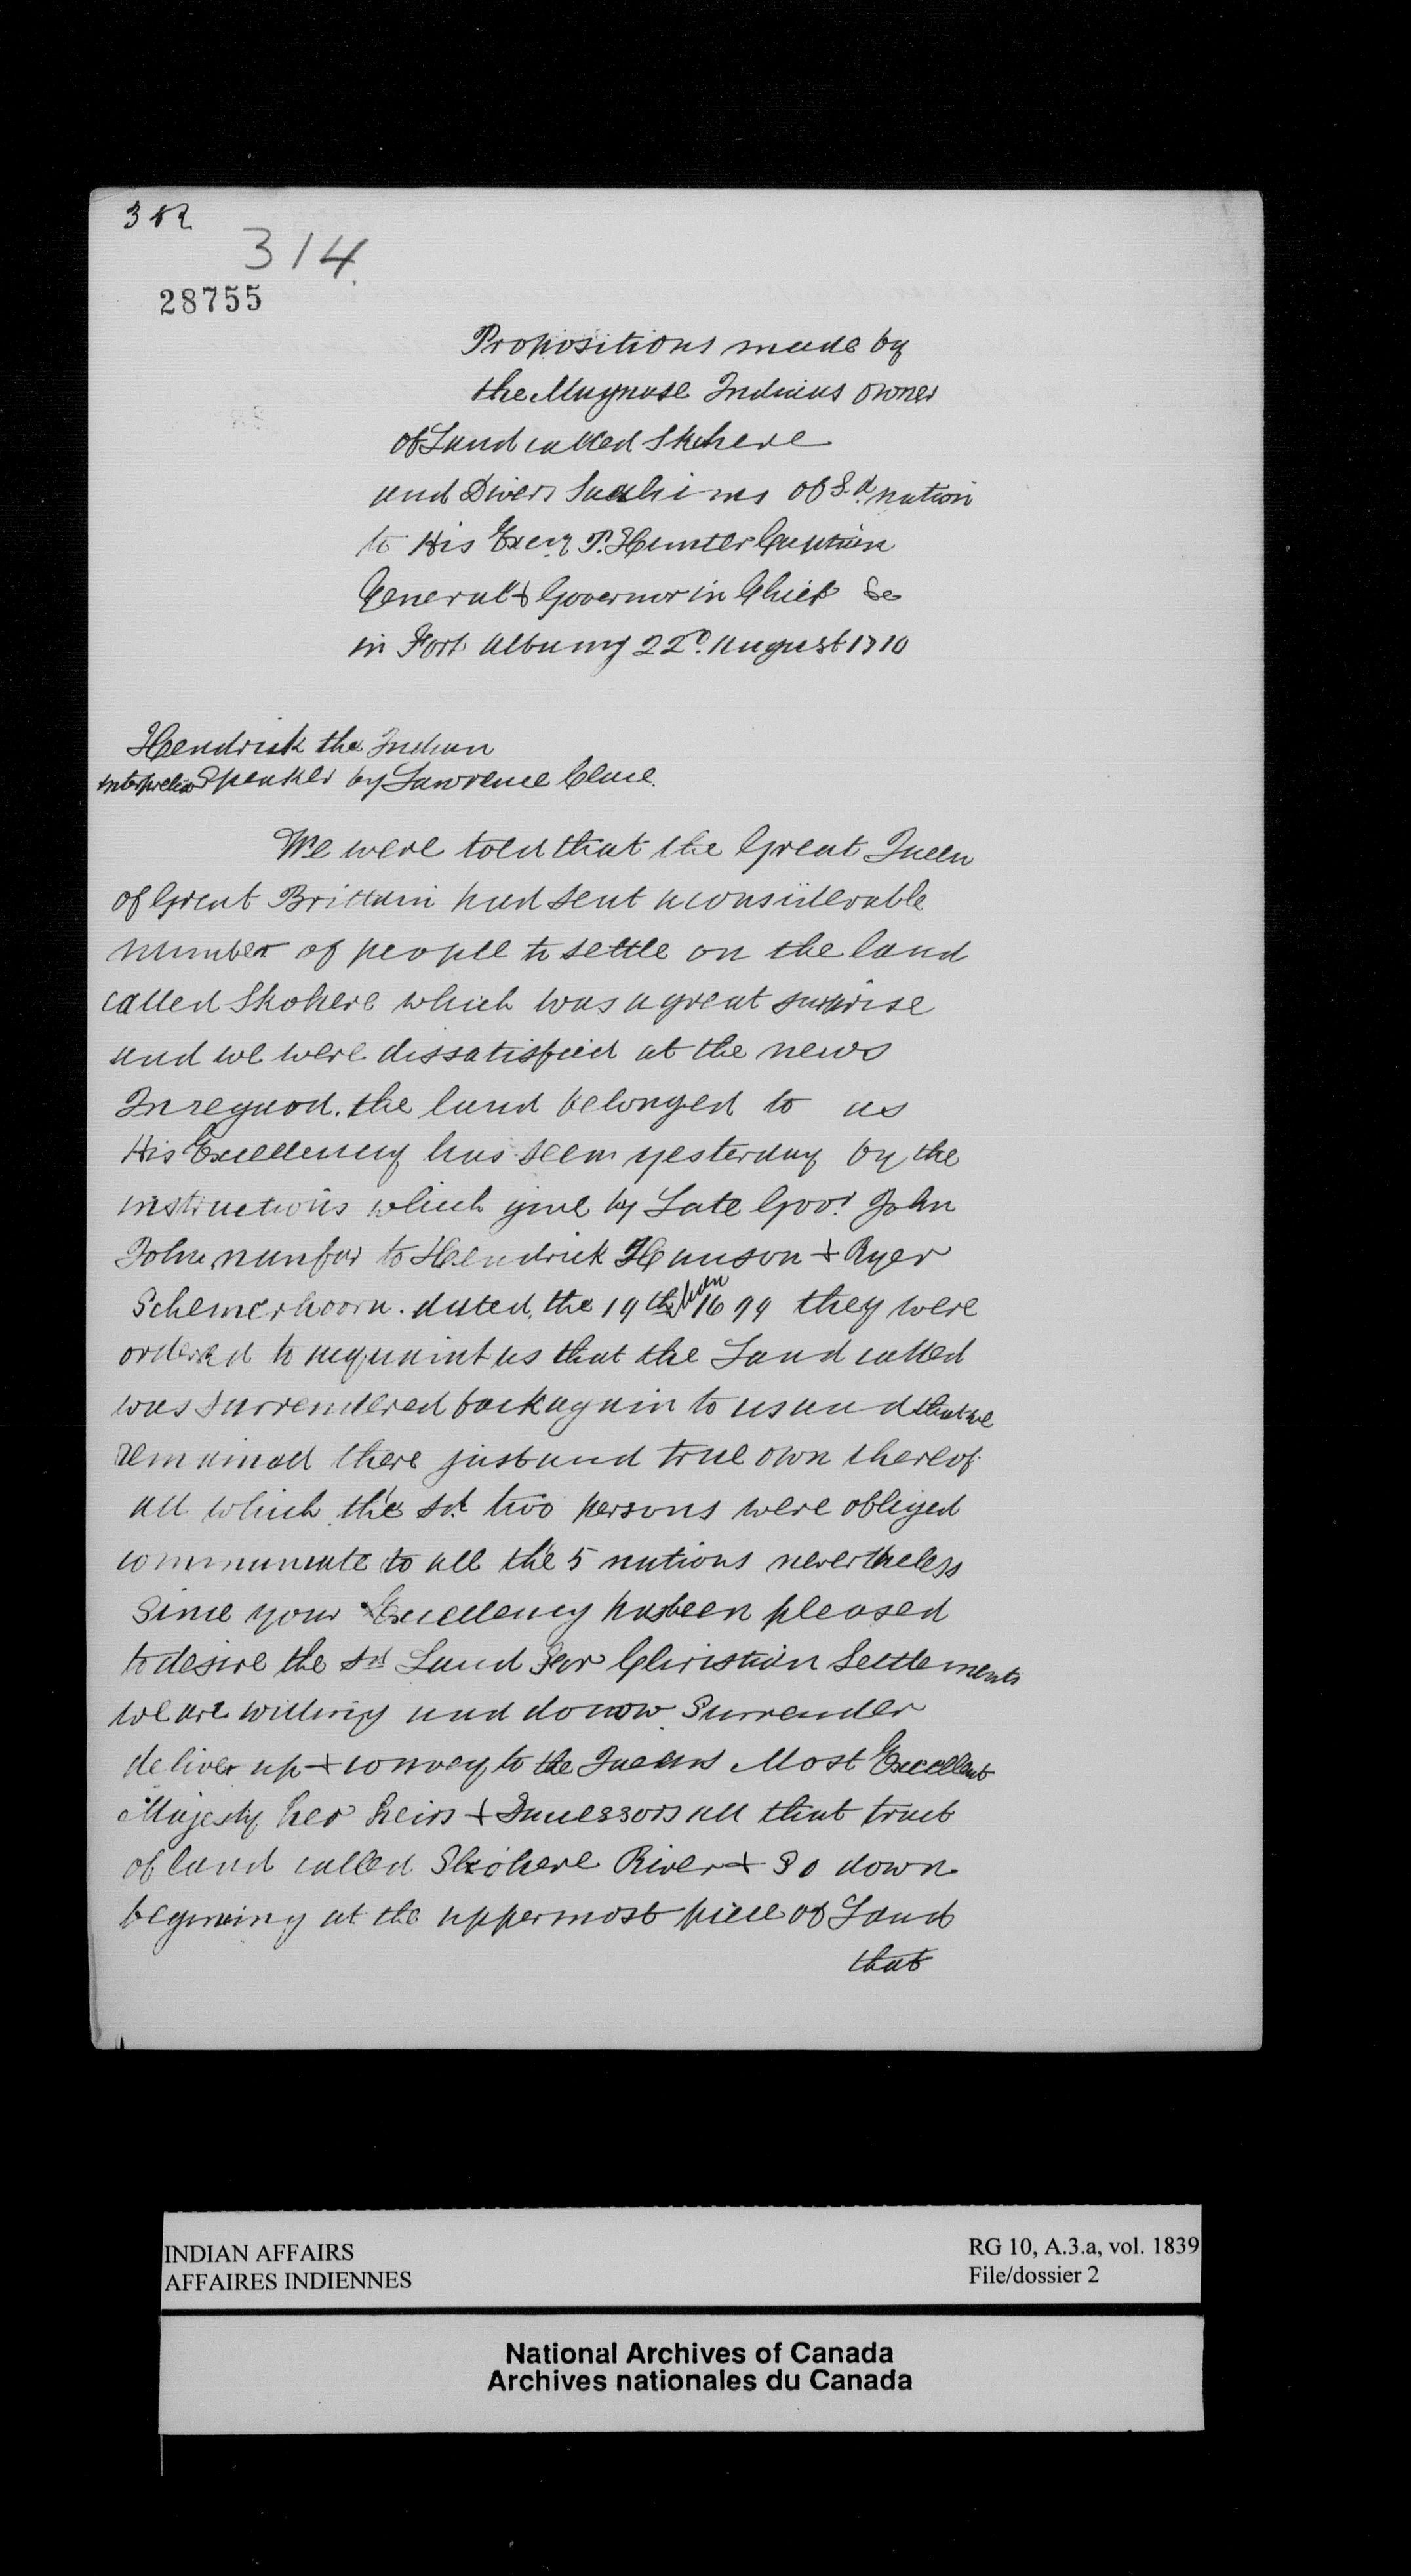 382
314.
28755
Propositions made by
the Maquase Indians owner
of Land called Skohere
and Divers Sachims of Sd. nation
to His Excy R. Hunter Captain
General & Governor in Chief &c
in Fort Albany 22d. August 1710
Hendrick the Indian
Speaker by Lawrence Clase.
We were told that the Great Queen
of Great Brittain had sent a considerable
number of people to settle on the land
called Skohere which was a great surprise
and we were dissatisfied at the news
In reguad. the land belonged to us
His Excellency has seen yesterday by the
instructions which give by Late Govr. John
John nanfar to Hendrick Hanson & Ryer
Schemerhoorn. dated. the 19th 1699 they were
ordered to acquaint us that the Land called
was surrendered back again to us and that we
remained there just and true own thereof
all which the sd. two persons were obliged
communicate to all the 5 nations nevertheless
Since your Excellency has been pleased
to desire the sd Land for Christian Settlements
we are willing and do now Surrender
deliver up & convey to the Queens Most Excellent
Majesty her heirs & Successors all that tract
of land called Skohere River & So down
begining at the uppermost piece of Land
that
INDIAN AFFAIRS
AFFAIRES INDIENNES
RG 10, A.3.a, vol. 1839
File/dossier 2
National Archives of Canada
Archives nationales du Canada